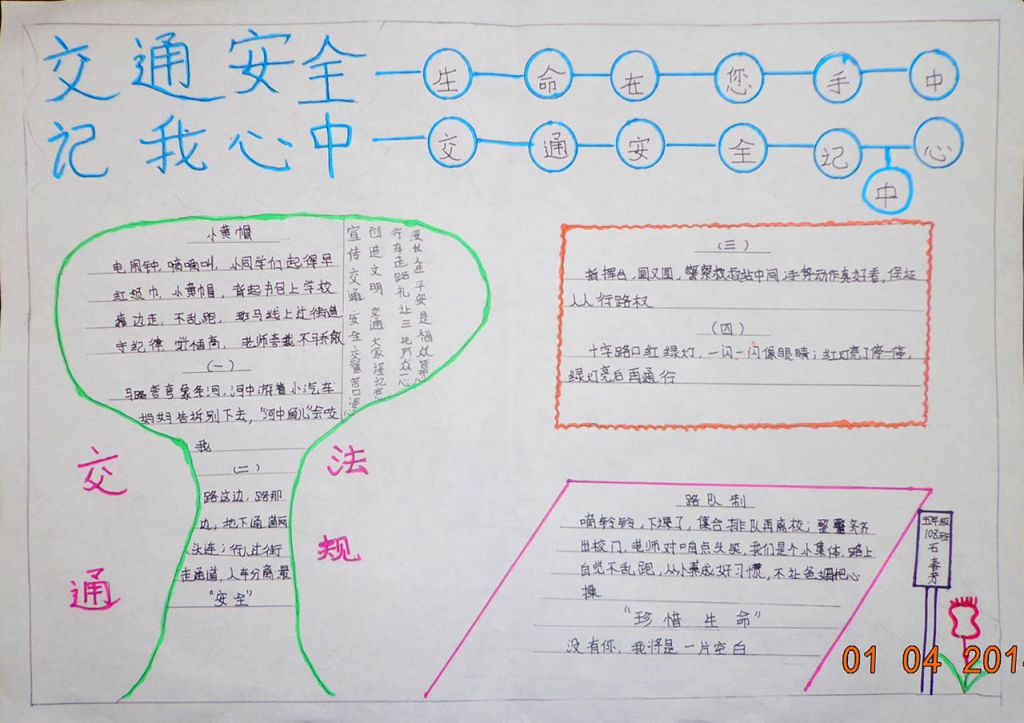 交通安全
记我心中
生命在您手中
交通安全记心中
小黄帽
电闹钟,嘀嘀叫,小同学们起得早
红领巾,小黄帽,背起书包上学校
靠边走,不乱跑,斑马线上过街道
守纪律
(一)
马路弯弯象条河,河中游着小汽车
妈妈告诉别下去,“河中鱼儿”会咬
我
(二)
路这边,路那
边,地下通道两
头连;
走通道,人车分离最
“安全”
宣传交通安全交警苦口婆心
创造文明交通大家谨记
行车走路礼让三
漫长人生平安是福
交通
法规
(三)
指挥台,圆又圆,警察叔叔站中间,手势动作真好看,保证
人人行路权
(四)
十字路口红绿灯,一闪一闪像眼睛;红灯亮了停一停,
绿灯亮后再通行
路队制
嘀铃铃,下课了,集合排队再离校;整整齐齐
出校门,老师对咱点头笑,我们是个小集体,路上
自觉不乱跑,从小养成好习惯,不让爸妈把心
操
“珍惜生命”
没有你,我将是一片空白
五年级
108班
石春芳
01 04 201